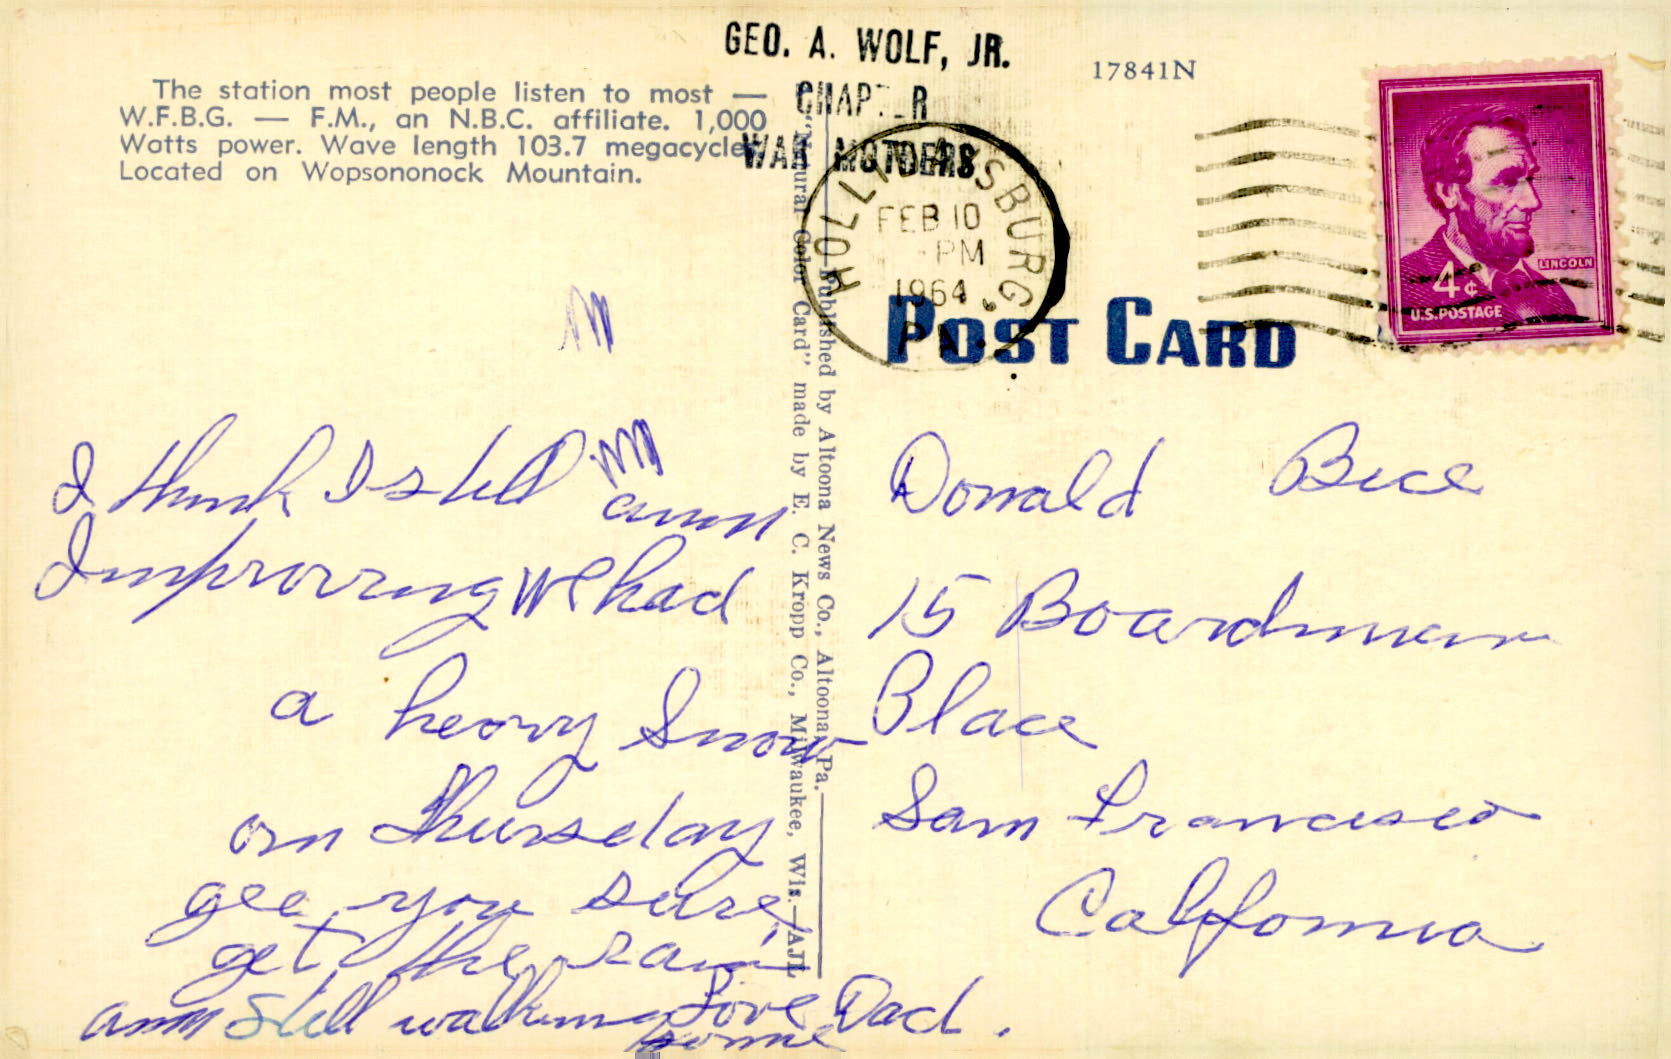 GEO. A. WOLF, JR.
CHAPTER
WAR MOTHERS
17841N
The station most people listen to most —
W.F.B.G. — F.M., an N.B.C. affiliate. 1,000
Watts power. Wave length 103.7 megacycles.
Located on Wopsononock Mountain.
HOLLIDAYSBURG,
FEB 10
PM
1964
PA.
LINCOLN
4¢
U.S. POSTAGE
POST CARD
—Published by Altoona News Co., Altoona, Pa.—
"Natural Color Card" made by E. C. Kropp Co., Milwaukee, Wis.—AJL
I think I still
am
Improving We had
a heavy Snow
on Thursday
gee you sure
get the rain
am still walking some
Love Dad.
Donald Bice
15 Boardman
Place
San Francisco
California